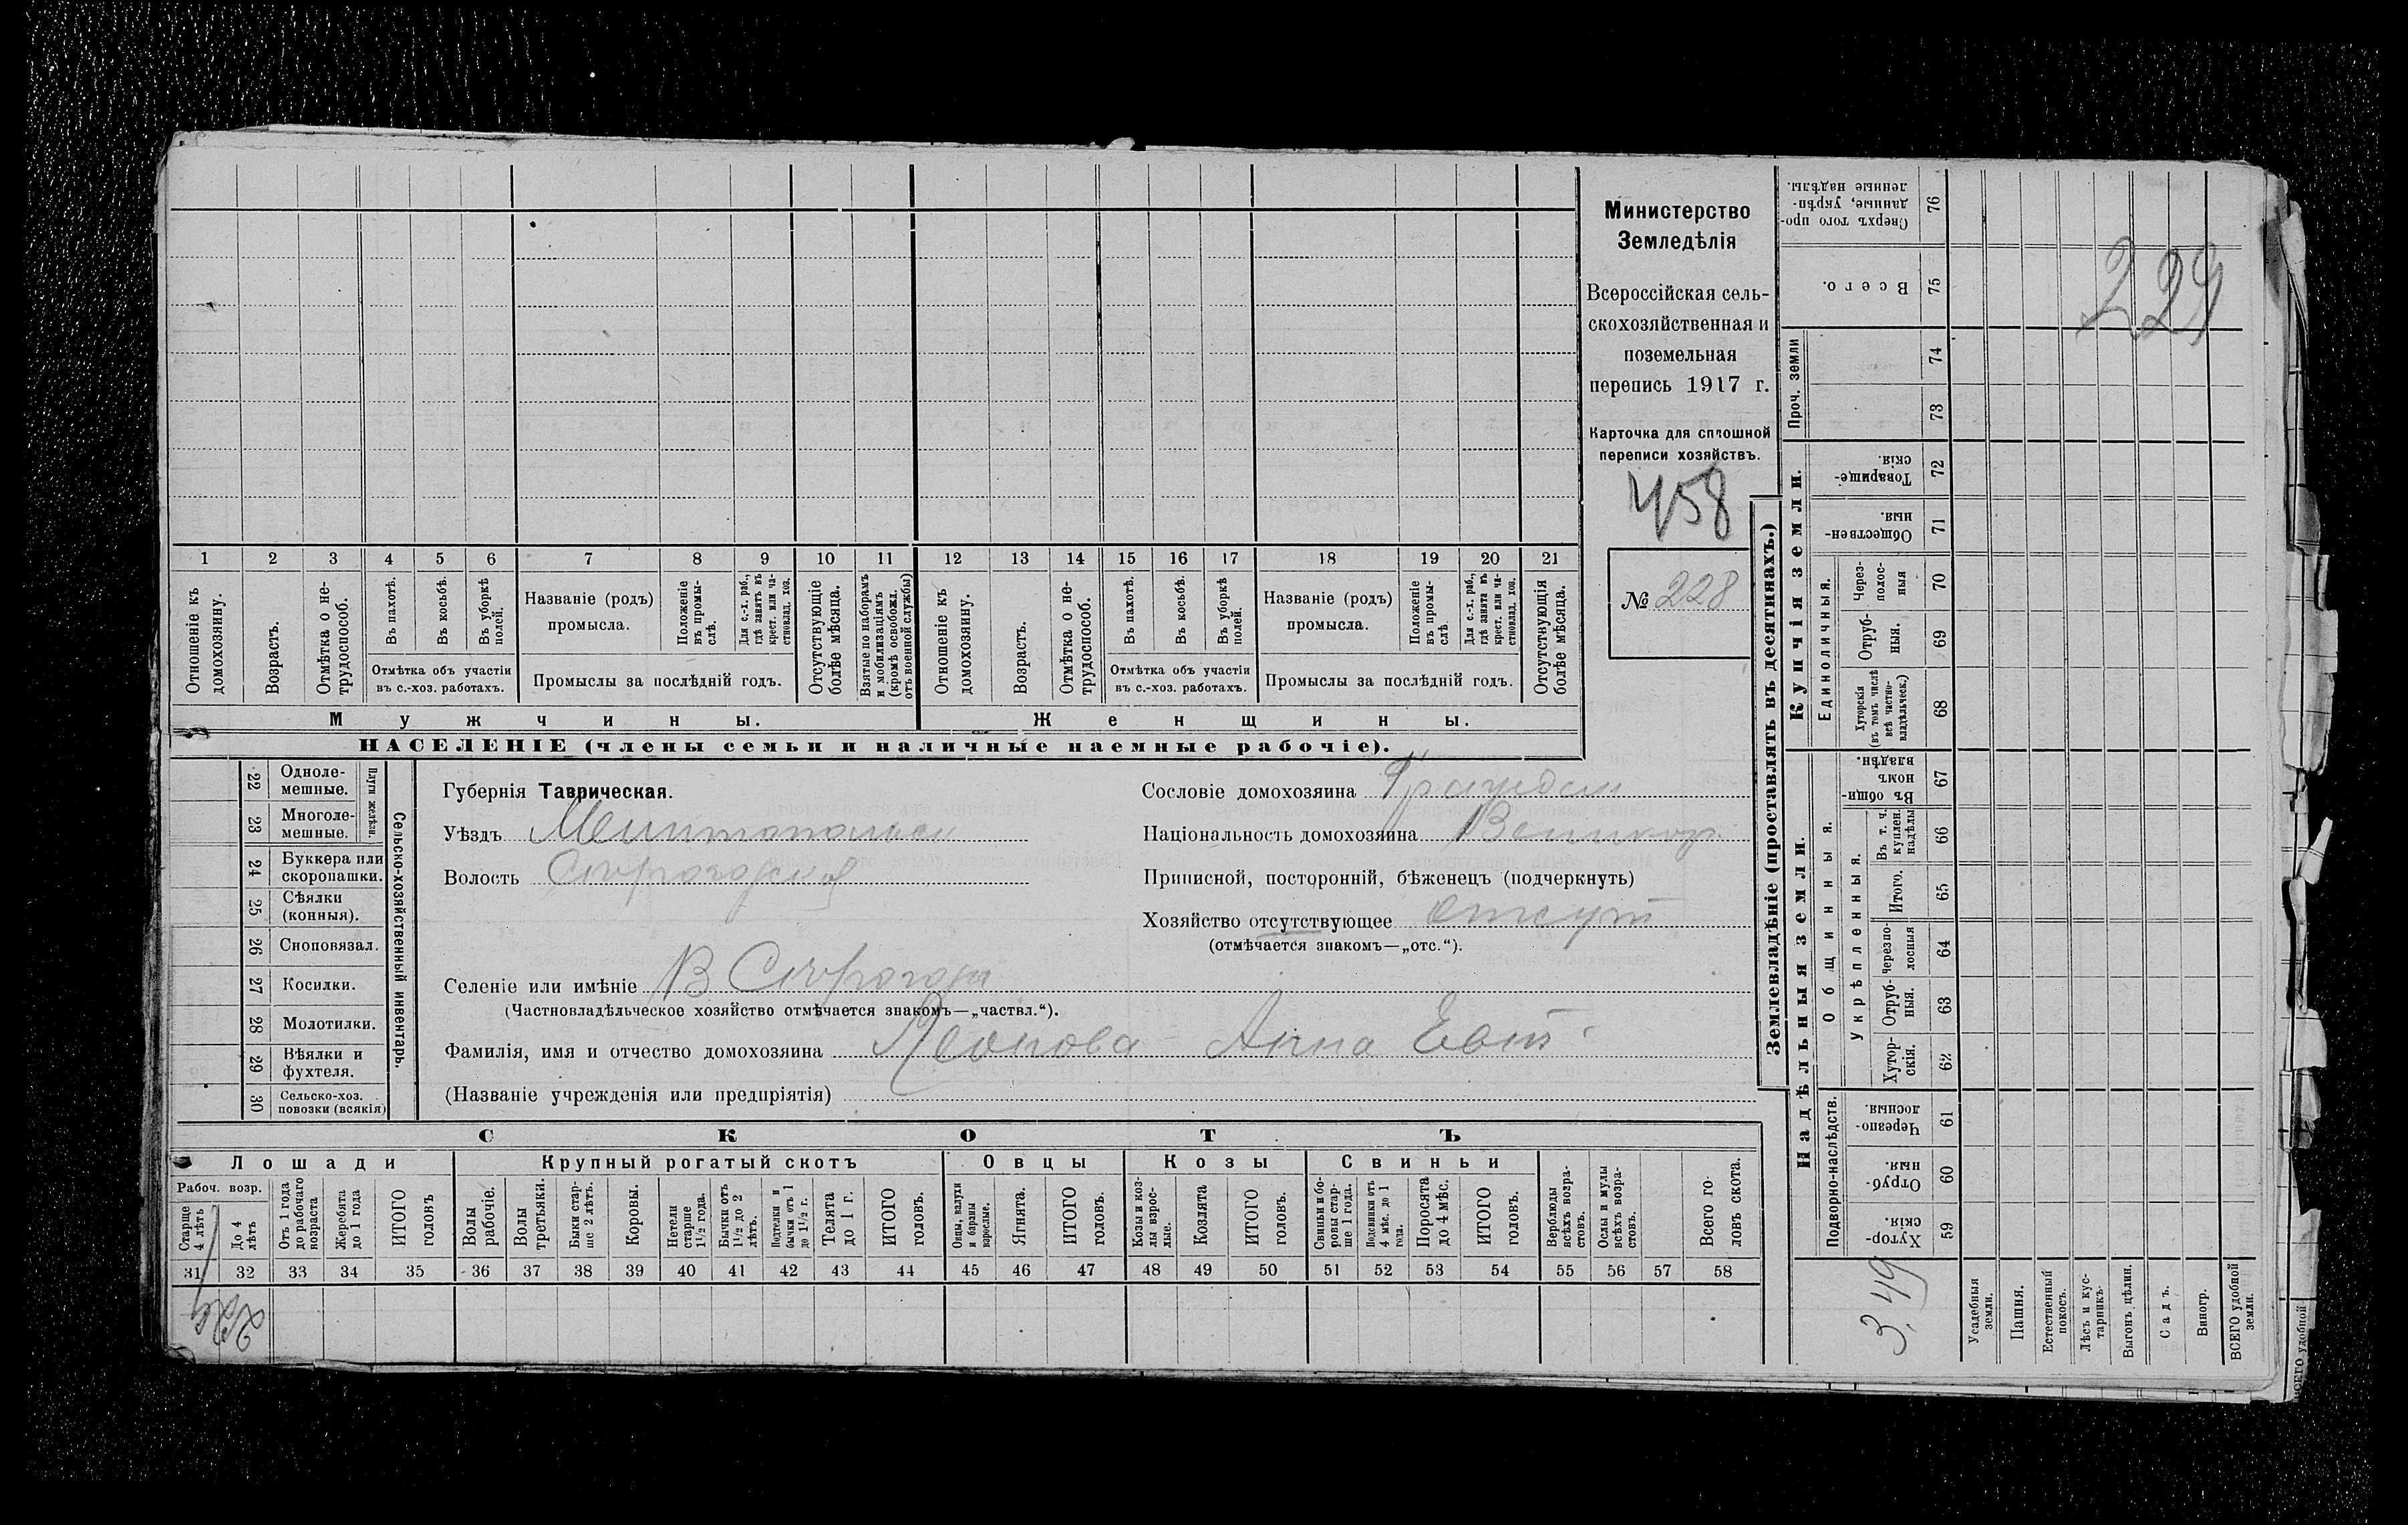 Министерство
Земледѣлія
Всероссійская сель-
скохозяйственная и
поземельная
перепись 1917 г.
Карточка для сплошной
переписи хозяйствъ.
458
№ 228
229
1 2 3 4 5 6 7 8 9 10 11 12 13 14 15 16 17 18 19 20 21
Отношеніе къ домохозяину.
Возрастъ.
Отмѣтка о не-трудоспособ.
Въ пахотѣ.
Въ косьбѣ.
Въ уборкѣ полей.
Отмѣтка объ участіи
въ с.-хоз. работахъ.
Названіе (родъ)
промысла.
Положеніе въ промы-слѣ.
Для с.-х. раб., гдѣ занятъ въ крест. или ча-стновлад. хоз.
Промыслы за послѣдній годъ.
Отсутствующіе болѣе мѣсяца.
Взятые по наборамъ и мобилизаціямъ (кромѣ освобожд. отъ военной службы)
Отношеніе къ домохозяину.
Возрастъ.
Отмѣтка о не-трудоспособ.
Въ пахотѣ.
Въ косьбѣ.
Въ уборкѣ полей.
Отмѣтка объ участіи
въ с.-хоз. работахъ.
Названіе (родъ)
промысла.
Положеніе въ промы-слѣ
Для с.-х. раб., гдѣ занята въ крест. или ча-стновлад. хоз.
Промыслы за послѣдній годъ.
Отсутствующія болѣе мѣсяца.
Мужчины.
Женщины.
НАСЕЛЕНІЕ (члены семьи и наличные наемные рабочіе).
Сельско-хозяйственный инвентарь.
Плуги желѣзн.
22 Одноле-мешные.
23 Многоле-мешные.
24 Буккера или скоропашки.
25 Сѣялки (конныя).
26 Сноповязал.
27 Косилки.
28 Молотилки.
29 Вѣялки и фухтеля.
30 Сельско-хоз. повозки (всякія)
Губернія Таврическая.
Уѣздъ
Волость
Селеніе или имѣніе
(Частновладѣльческое хозяйство отмѣчается знакомъ—„частвл.“).
Сословіе домохозяина Граждан
Національность домохозяина Великор.
Приписной, посторонній, бѣженецъ (подчеркнуть)
Хозяйство отсутствующее отсут
(отмѣчается знакомъ—„отс.“).
Фамилія, имя и отчество домохозяина Леонова Анна Евт.
(Названіе учрежденія или предпріятія)
СКОТЪ
Лошади
Крупный рогатый скотъ
Овцы
Козы
Свиньи
Рабоч. возр.
Старше 4 лѣтъ
До 4 лѣтъ
Отъ 1 года до рабочаго возраста
Жеребята до 1 года
ИТОГО головъ
Волы рабочіе.
Волы третьяки.
Быки стар-ше 2 лѣтъ.
Коровы.
Нетели старше 1½ года.
Бычки отъ 1½ до 2 лѣтъ.
Подтелки и бычки отъ 1 до 1½ г.
Телята до 1 г.
ИТОГО головъ.
Овцы, валухи и бараны взрослые.
Ягнята.
ИТОГО головъ.
Козы и коз-лы взрос-лые.
Козлята
ИТОГО головъ.
Свиньи и бо-ровы стар-ше 1 года.
Подсвинки отъ 4 мѣс. до 1 года.
Поросята до 4 мѣс.
ИТОГО головъ.
Верблюды всѣхъ возра-стовъ.
Ослы и мулы всѣхъ возра-стовъ.
Всего го-ловъ скота.
31 32 33 34 35 36 37 38 39 40 41 42 43 44 45 46 47 48 49 50 51 52 53 54 55 56 57 58
Землевладѣніе (проставлять въ десятинахъ.)
Купчія земли.
Надѣльныя земли.
Проч. земли
Единоличныя.
Общинныя.
Укрѣпленныя.
Подворно-наслѣдств.
Сверхъ того про-данные, укрѣп-ленные надѣлы. 76
Всего. 75
74
73
Товарище-скія. 72
Обществен-ныя. 71
Через-полос-ныя 70
Отруб-ныя. 69
Хуторскія (въ томъ числѣ всѣ частно-владѣльческ.) 68
Въ общин-номъ владѣн. 67
Въ т. ч. куплен. надѣлы 66
Итого. 65
Черезпо-лосныя 64
Отруб-ныя. 63
Хутор-скія. 62
Черезпо-лосныя 61
Отруб-ныя. 60
Хутор-скія. 59
3.49
Усадебныя земли.
Пашня.
Естественный покосъ.
Лѣсъ и кус-тарникъ.
Выгонъ цѣлин.
Садъ.
Виногр.
ВСЕГО удобной земли.